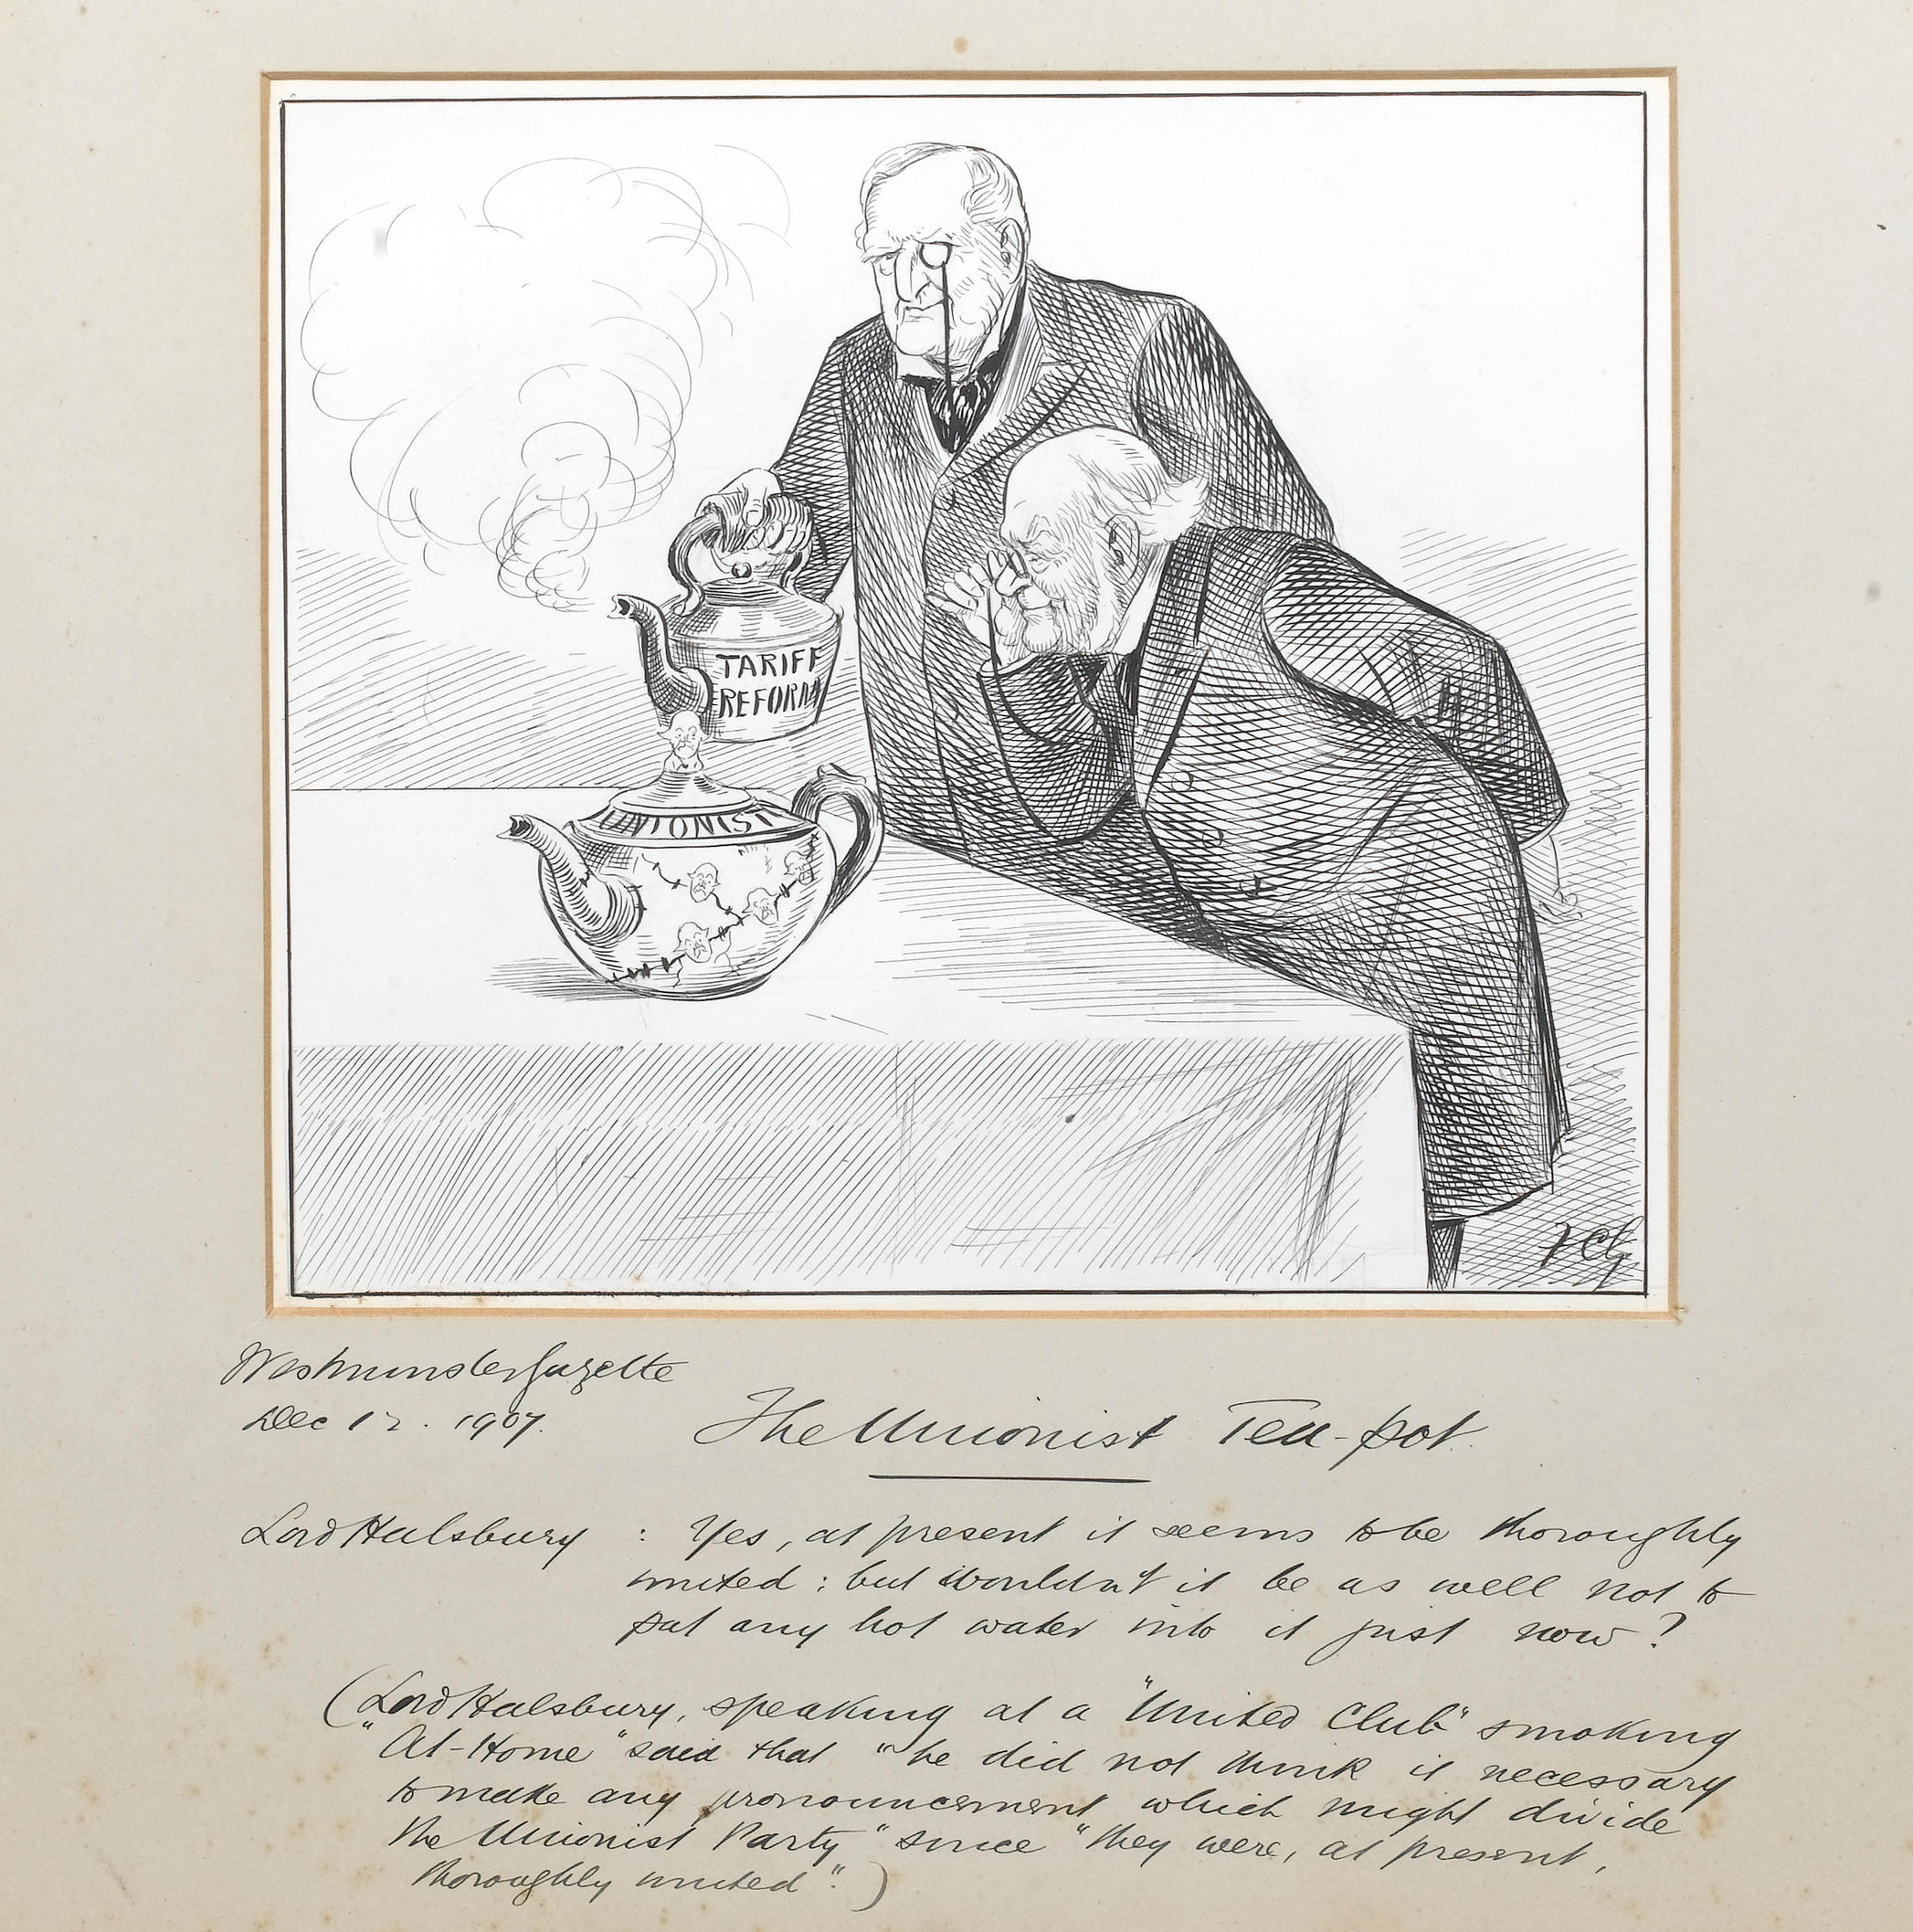 TARIFF
REFORM
UNIONIST
FCG
Westminster Gazette
Dec 12. 1907.
The Unionist Tea-pot.
Lord Halsbury : Yes, at present it seems to be thoroughly
united : but wouldn't it be as well not to
put any hot water into it just now?
(Lord Halsbury, speaking at a "United Club" smoking
"At-Home" said that "he did not think it necessary
to make any pronouncement which might divide
the Unionist Party" since "they were, at present,
thoroughly united".)